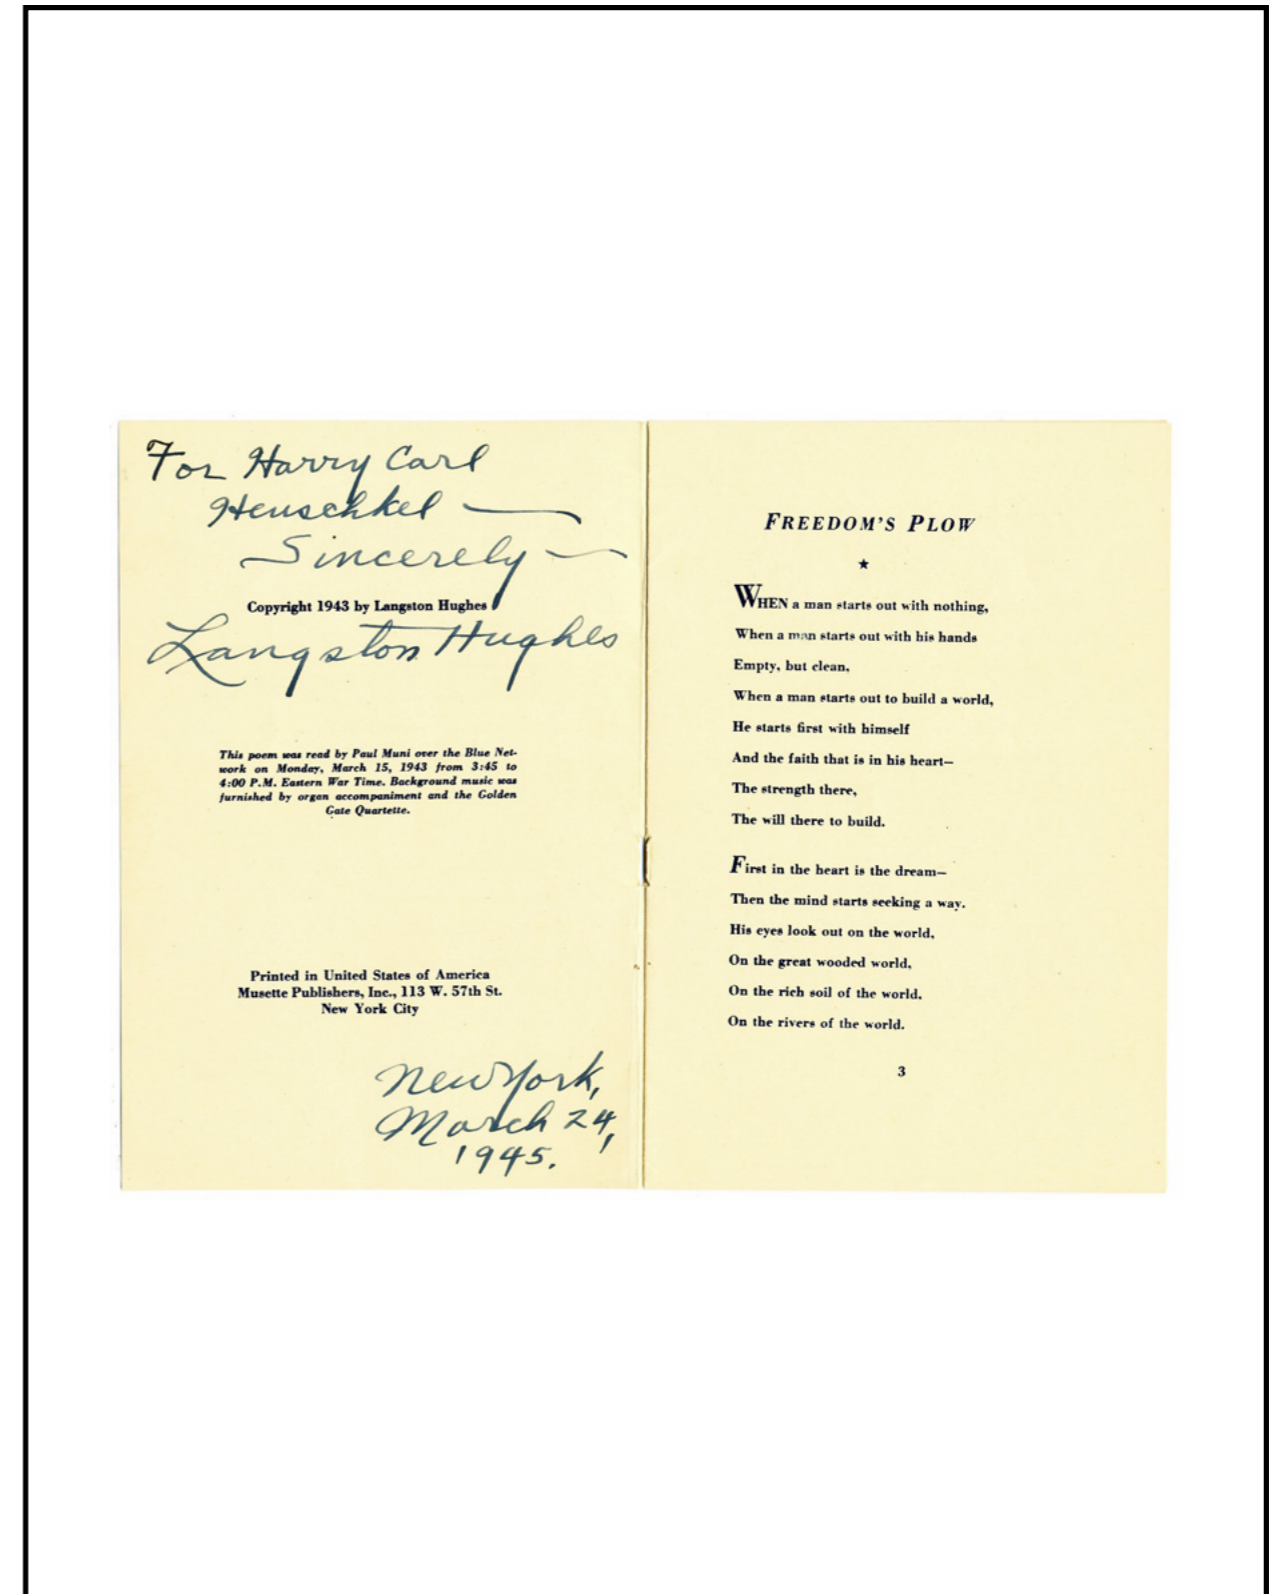 For Harry Carl
Henschkel —
Sincerely —
Copyright 1943 by Langston Hughes
Langston Hughes
This poem was read by Paul Muni over the Blue Net-
work on Monday, March 15, 1943 from 3:45 to
4:00 P.M. Eastern War Time. Background music was
furnished by organ accompaniment and the Golden
Gate Quartette.
Printed in United States of America
Musette Publishers, Inc., 113 W. 57th St.
New York City
New York,
March 24,
1945.
FREEDOM'S PLOW
★
WHEN a man starts out with nothing,
When a man starts out with his hands
Empty, but clean,
When a man starts out to build a world,
He starts first with himself
And the faith that is in his heart—
The strength there,
The will there to build.
First in the heart is the dream—
Then the mind starts seeking a way.
His eyes look out on the world,
On the great wooded world,
On the rich soil of the world,
On the rivers of the world.
3